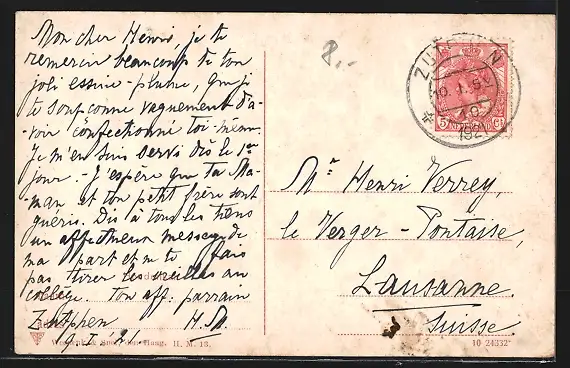 Mon cher Henri, je te
remercie beaucoup de ton
joli essuie-plume, que je
te soupçonne vaguement d'a-
voir confectionné toi-même.
Je m'en suis servi dès le 1er
jour. - J'espère que ta Ma-
man et ton petit frère sont
guéris. Dis à tous les tiens
un affectueux message de
ma part et ne te fais
pas tirer les oreilles au
collège. Ton aff. parrain
Zutphen H. M.
Haag. H. M. 13.
8,-
ZUTPHEN
5 NEDERLAND Ct
Mr Henri Verrey,
le Verger - Pontaise,
Lausanne.
Suisse.
10 24332